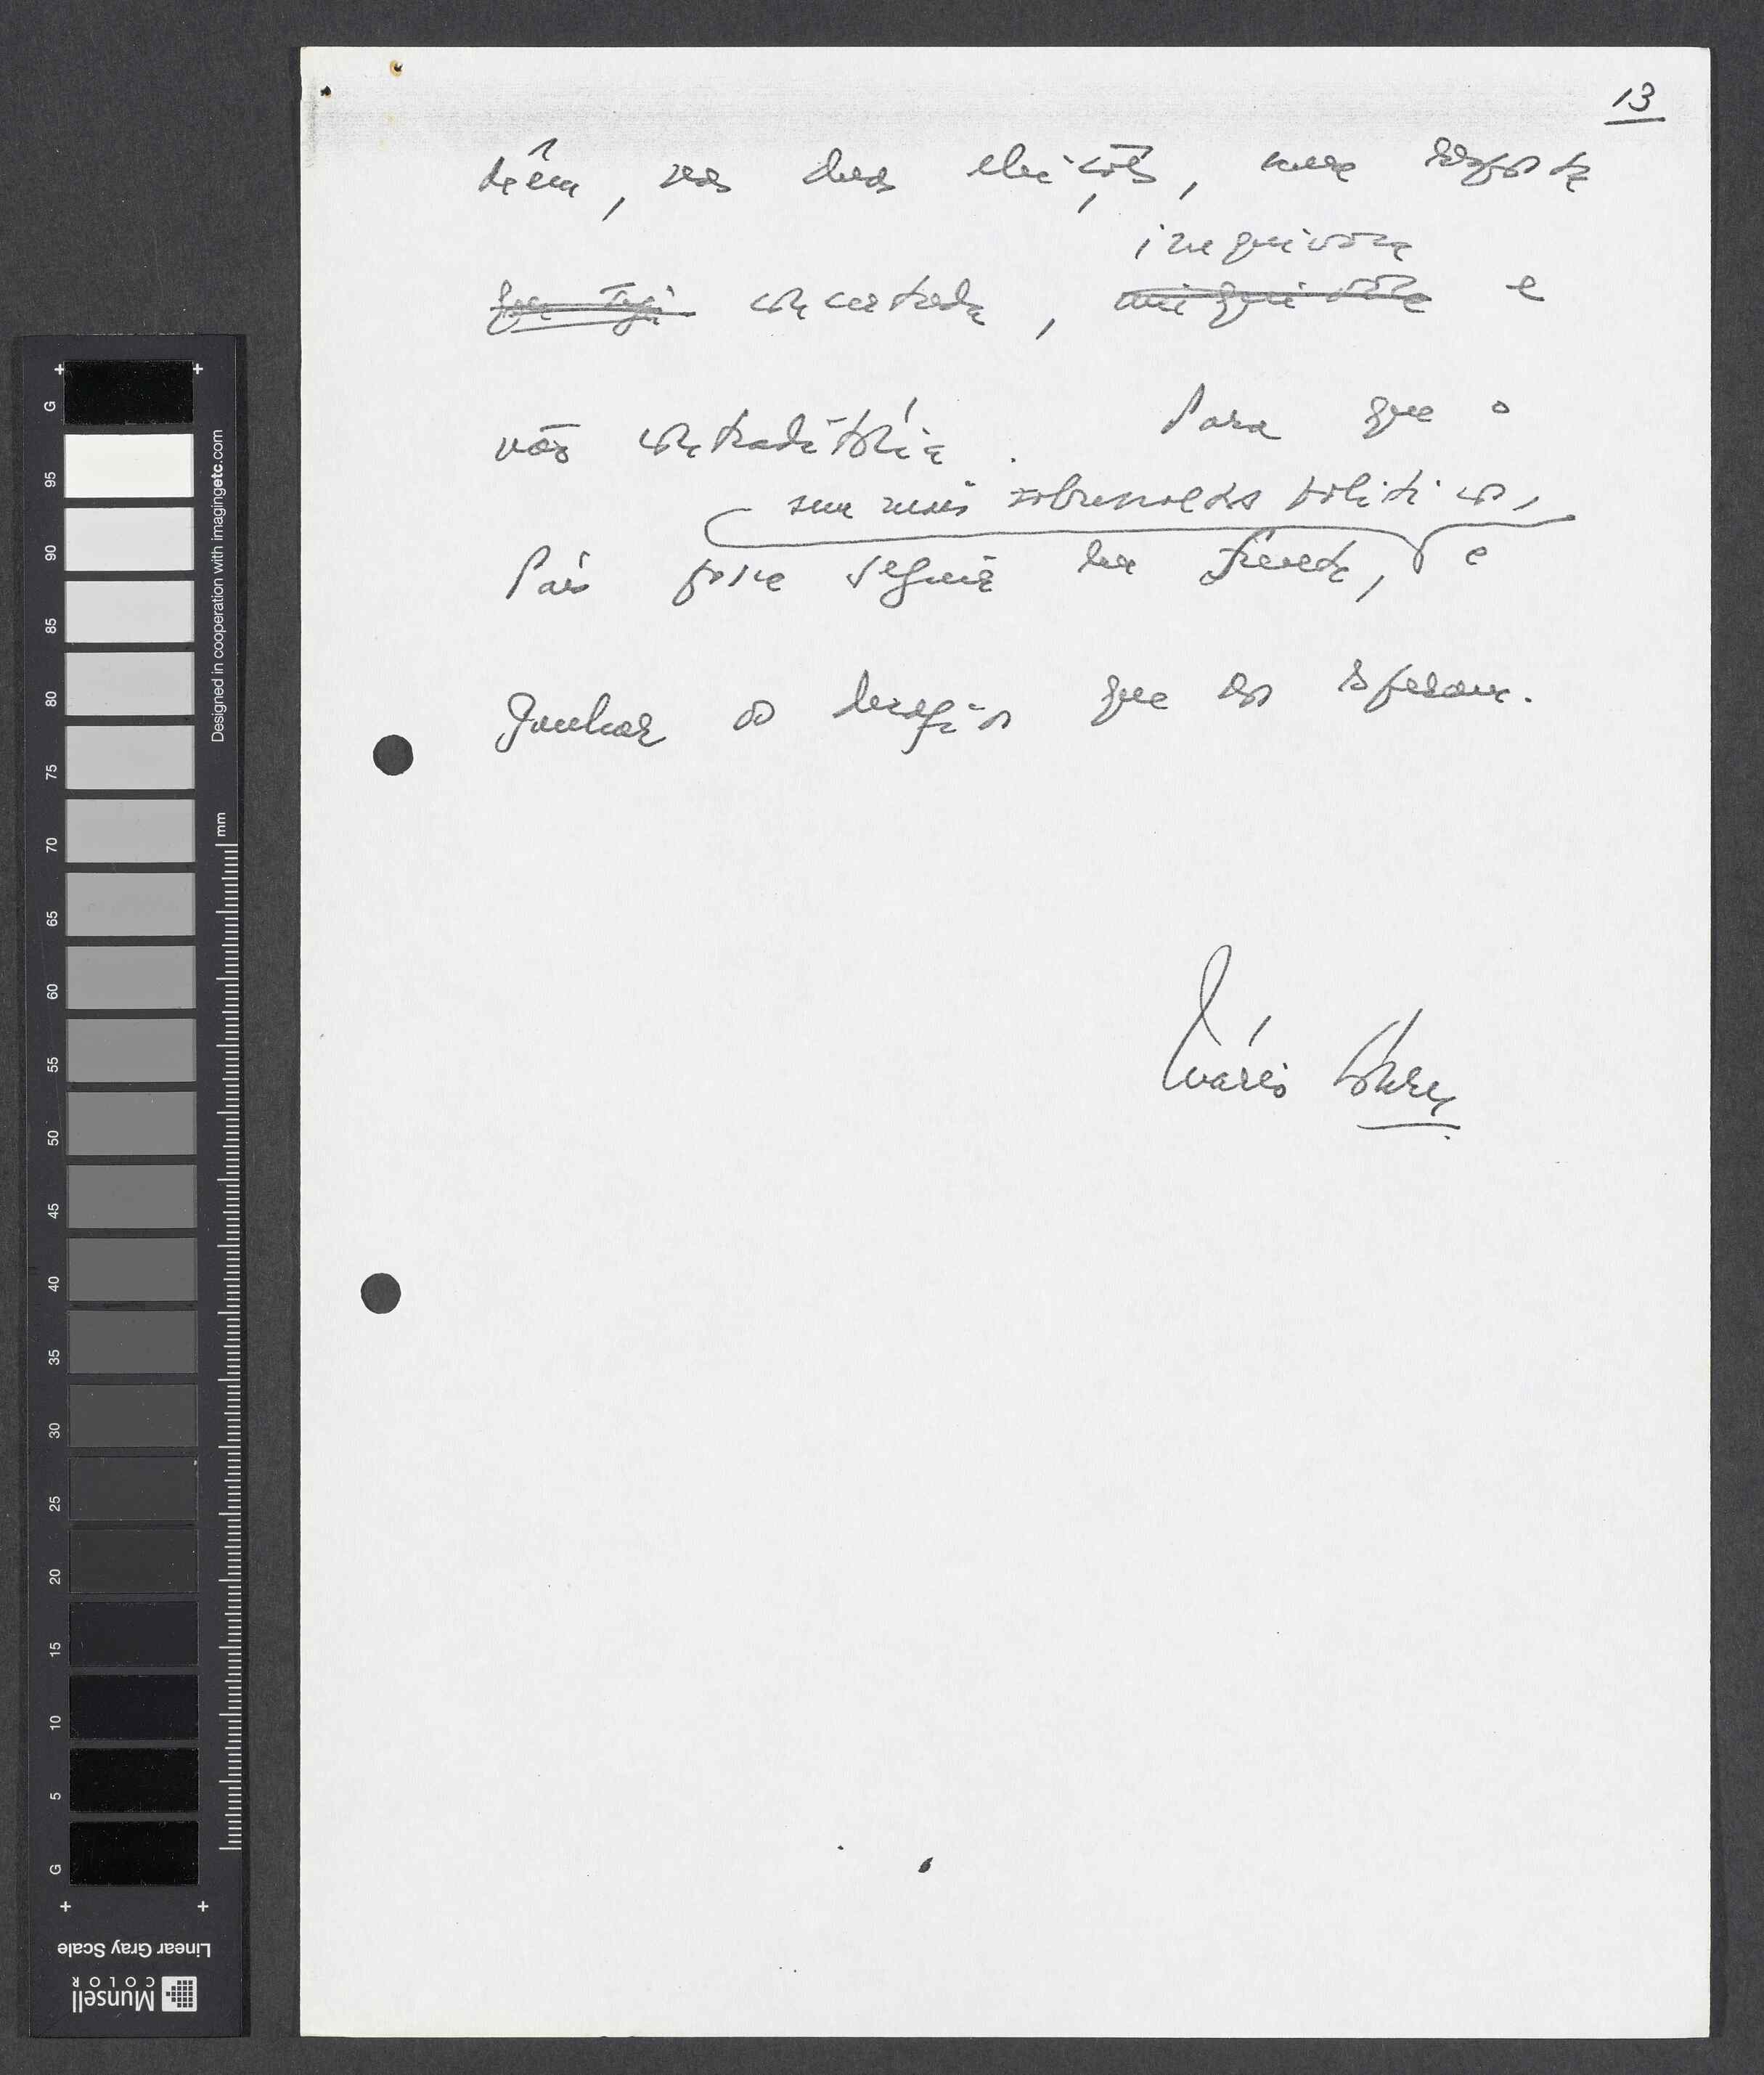 13
têm, nas duas eleições, uma resposta
inequívoca
que seja concertada, inequívoca e
não contraditória. Para que o
sem mais sobressaltos políticos,
País possa seguir em frente, e
ganhar os desafios que o esperam.
Mário Soares
G
95
90
85
80
75
70
65
60
55
50
45
40
35
30
25
20
15
10
5
G
Designed in cooperation with imagingetc.com
mm
Linear Gray Scale
Munsell
COLOR